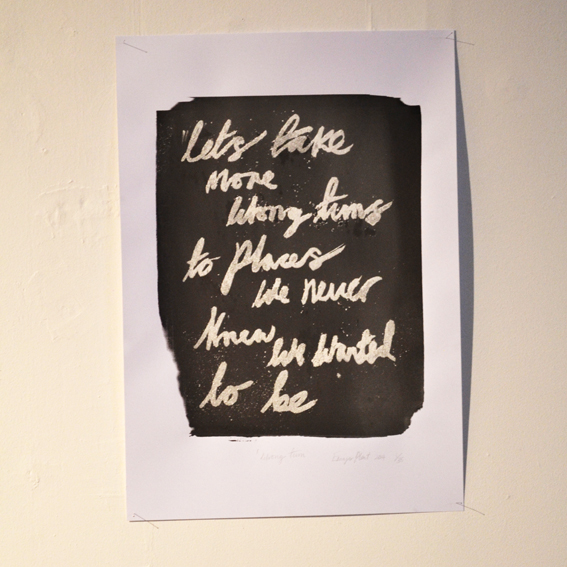 "lets take
more
wrong turns
to places
we never
knew
we wanted
to be